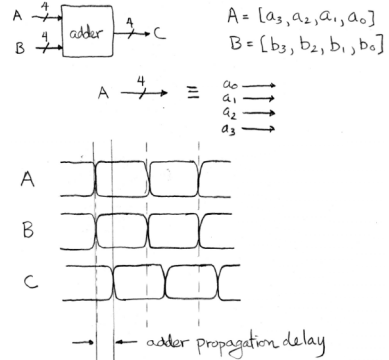 A 4 adder 4 C
B 4
A = [a₃, a₂, a₁, a₀]
B = [b₃, b₂, b₁, b₀]
A 4 ≡ a₀
a₁
a₂
a₃
A
B
C
adder propagation delay